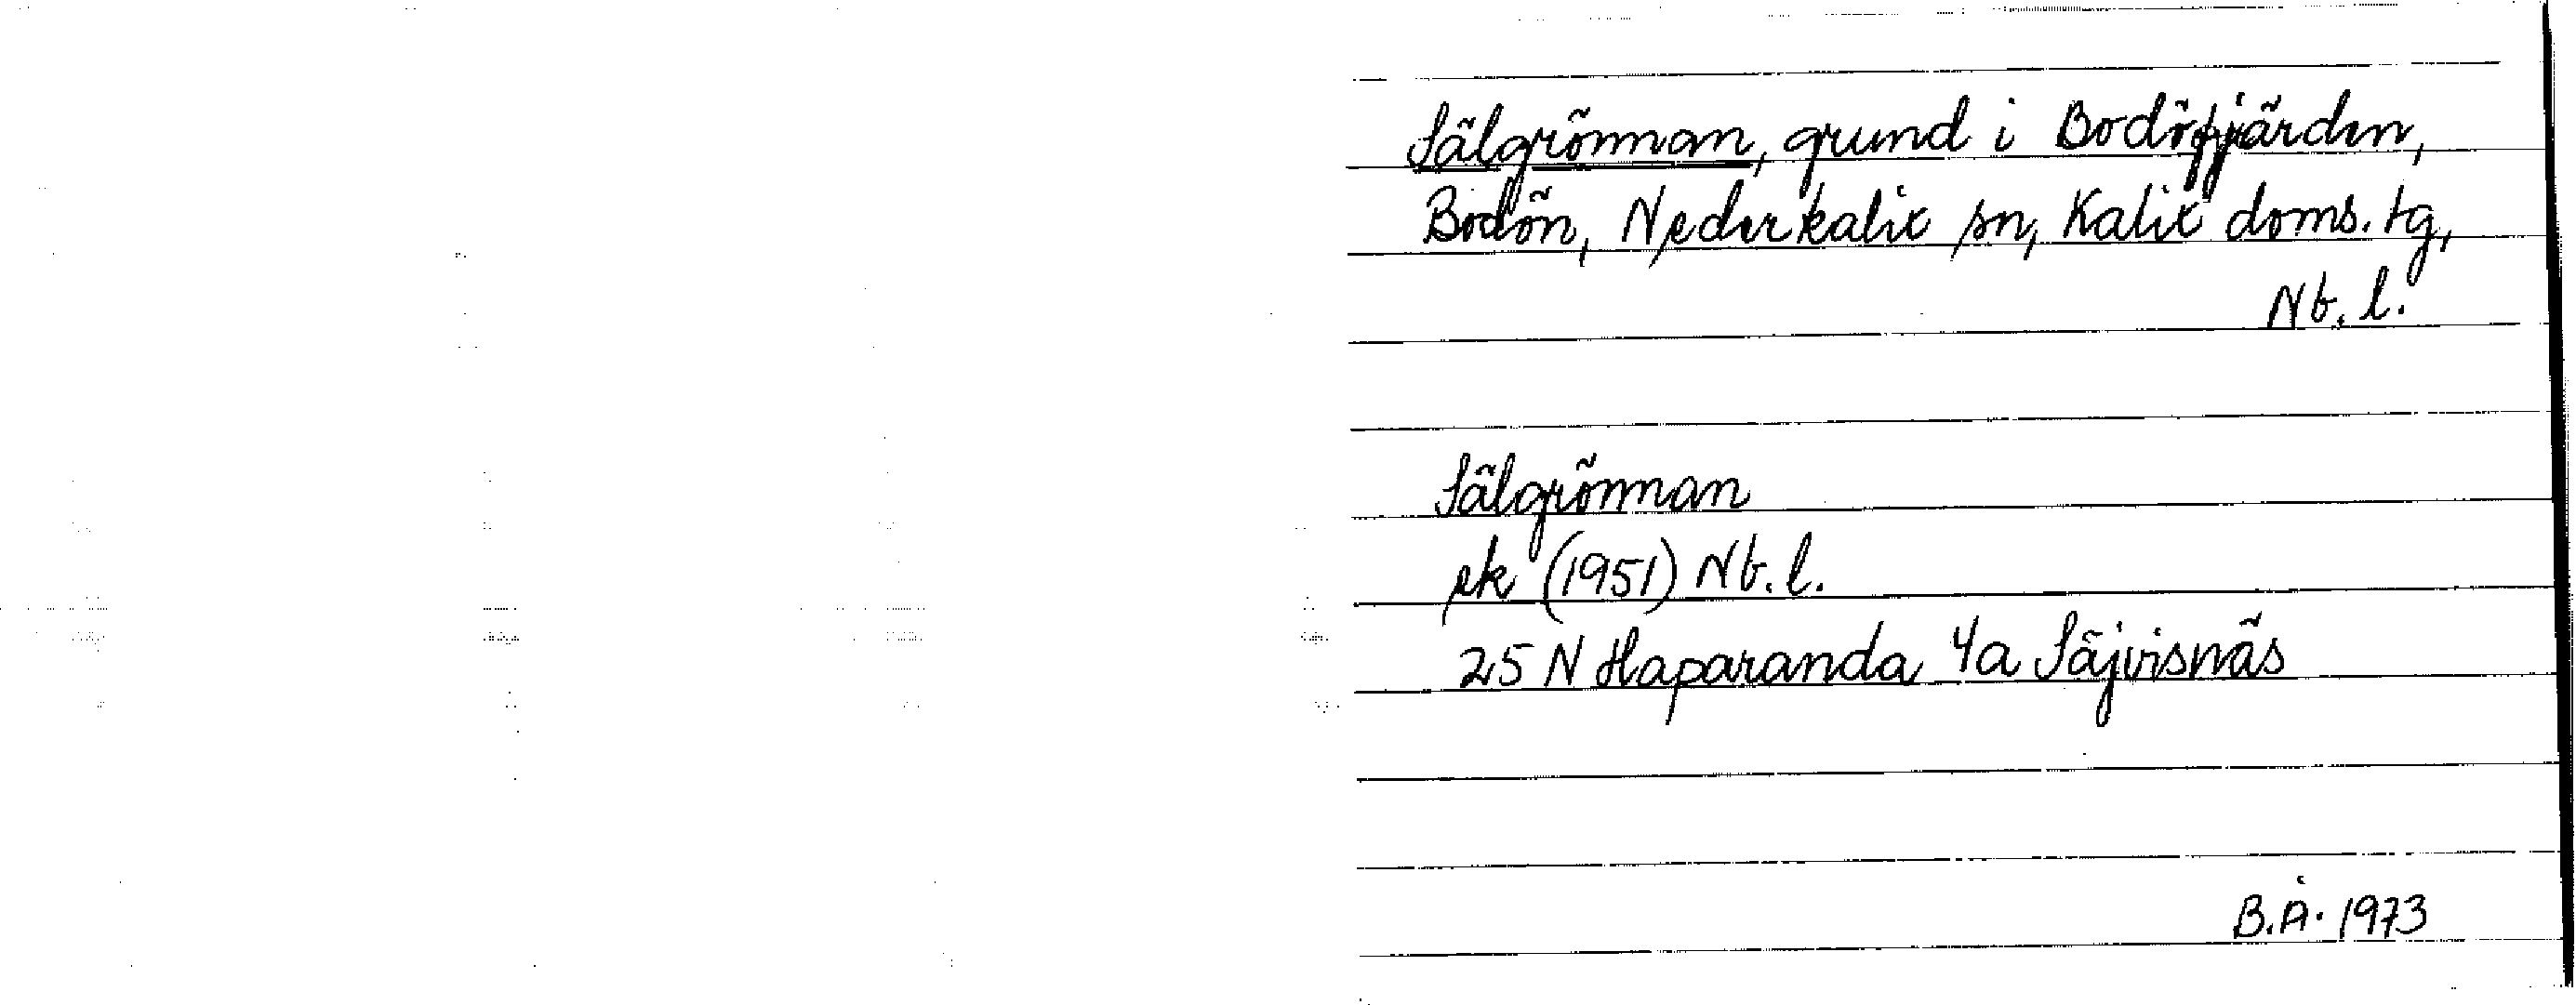 Sälgrönnan, grund i Bodöfjärden,
Bodön, Nederkalix sn, Kalix doms. tg,
Nb. l.
Sälgrönnan
ek (1951) Nb. l.
25 N Haparanda 4a Säjvisnäs
B.Å. 1973